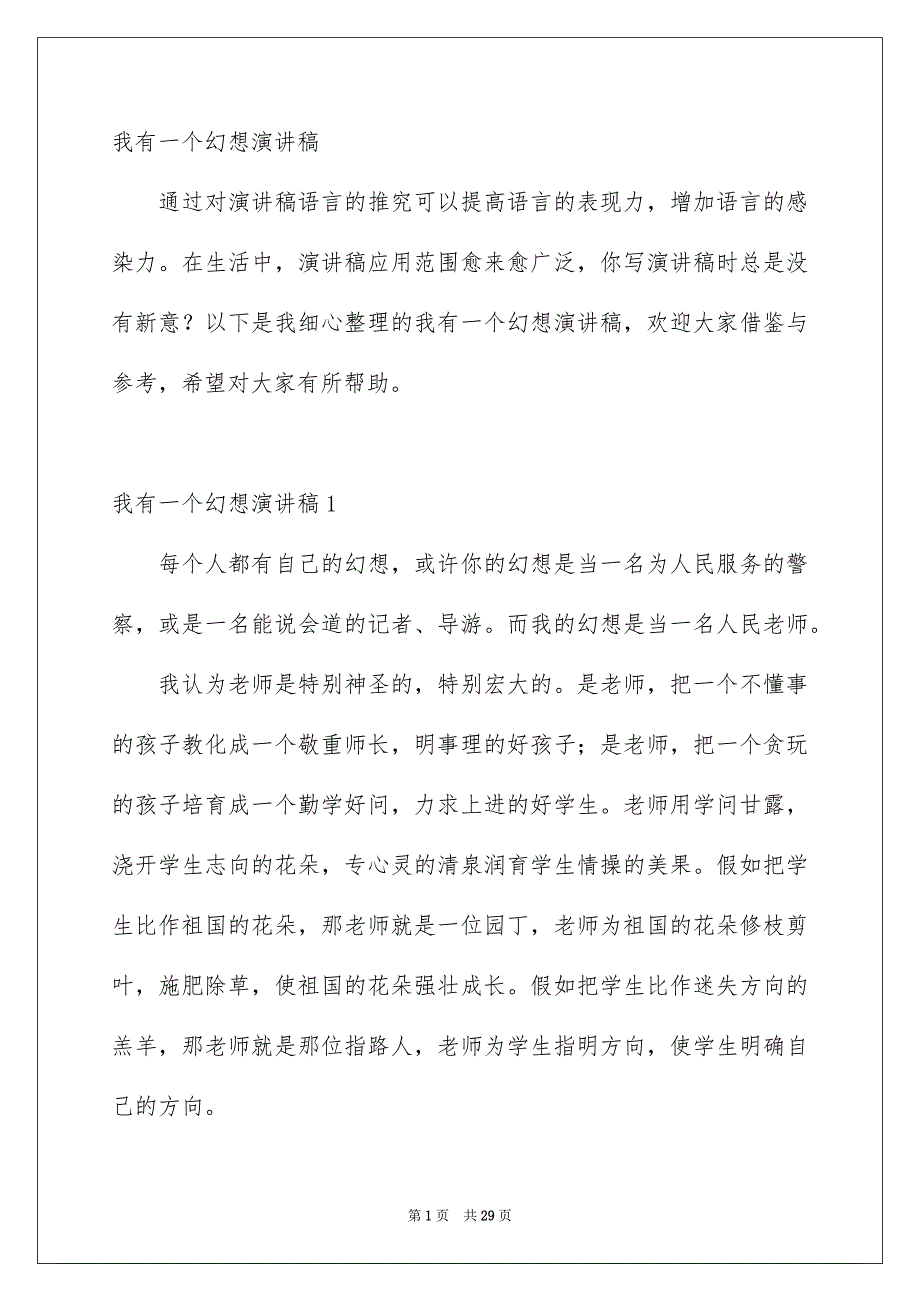 我有一个幻想演讲稿
通过对演讲稿语言的推究可以提高语言的表现力，增加语言的感
染力。在生活中，演讲稿应用范围愈来愈广泛，你写演讲稿时总是没
有新意？以下是我细心整理的我有一个幻想演讲稿，欢迎大家借鉴与
参考，希望对大家有所帮助。
我有一个幻想演讲稿 1
每个人都有自己的幻想，或许你的幻想是当一名为人民服务的警
察，或是一名能说会道的记者、导游。而我的幻想是当一名人民老师。
我认为老师是特别神圣的，特别宏大的。是老师，把一个不懂事
的孩子教化成一个敬重师长，明事理的好孩子；是老师，把一个贪玩
的孩子培育成一个勤学好问，力求上进的好学生。老师用学问甘露，
浇开学生志向的花朵，专心灵的清泉润育学生情操的美果。假如把学
生比作祖国的花朵，那老师就是一位园丁，老师为祖国的花朵修枝剪
叶，施肥除草，使祖国的花朵强壮成长。假如把学生比作迷失方向的
羔羊，那老师就是那位指路人，老师为学生指明方向，使学生明确自
己的方向。
第 1 页 共 29 页